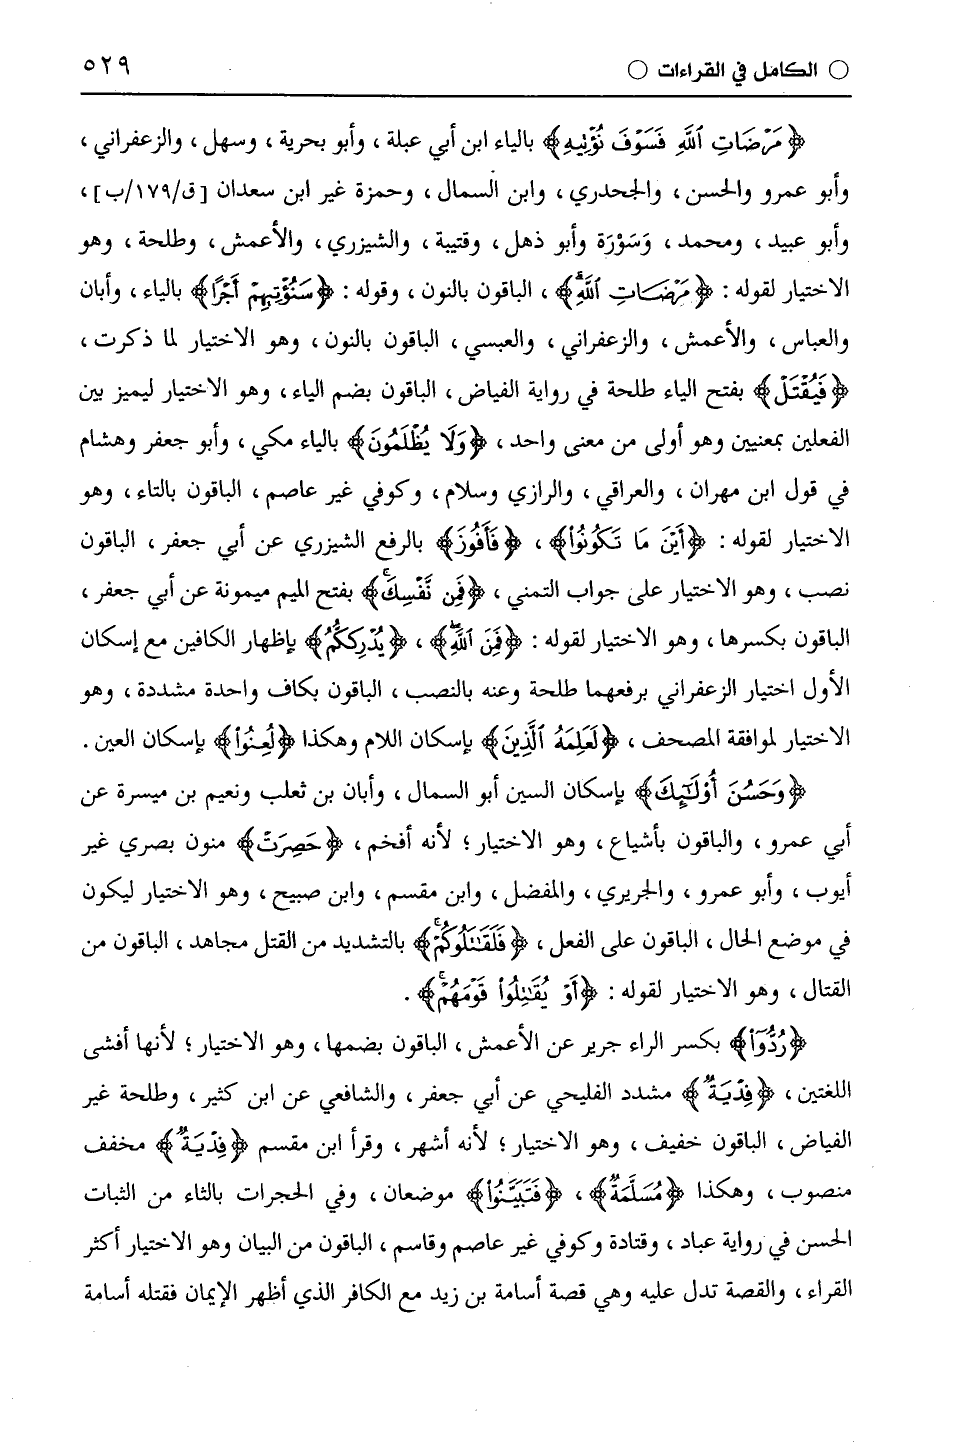 ○ الكامل في القراءات ○ ٥٢٩
﴿مَرْضَاتِ ٱللَّهِ فَسَوْفَ نُؤْتِيهِ﴾ بالياء ابن أبي عبلة، وأبو بحرية، وسهل، والزعفراني،
وأبو عمرو والحسن، والجحدري، وابن السمال، وحمزة غير ابن سعدان [ق/١٧٩/ب]،
وأبو عبيد، ومحمد، وَسَوْرَة وأبو ذهل، وقتيبة، والشيزري، والأعمش، وطلحة، وهو
الاختيار لقوله: ﴿مَرْضَاتِ ٱللَّهِ﴾، الباقون بالنون، وقوله: ﴿سَنُؤْتِيهِمْ أَجْرًا﴾ بالياء، وأبان
والعباس، والأعمش، والزعفراني، والعبسي، الباقون بالنون، وهو الاختيار لما ذكرت،
﴿فَيُقْتَلْ﴾ بفتح الياء طلحة في رواية الفياض، الباقون بضم الياء، وهو الاختيار ليميز بين
الفعلين بمعنيين وهو أولى من معنى واحد، ﴿وَلَا يُظْلَمُونَ﴾ بالياء مكي، وأبو جعفر وهشام
في قول ابن مهران، والعراقي، والرازي وسلام، وكوفي غير عاصم، الباقون بالتاء، وهو
الاختيار لقوله: ﴿أَيْنَ مَا تَكُونُوا۟﴾، ﴿فَأَفُوزَ﴾ بالرفع الشيزري عن أبي جعفر، الباقون
نصب، وهو الاختيار على جواب التمني، ﴿فَمِن نَّفْسِكَ ۚ﴾ بفتح الميم ميمونة عن أبي جعفر،
الباقون بكسرها، وهو الاختيار لقوله: ﴿فَمِنَ ٱللَّهِ ۖ﴾، ﴿يُدْرِككُّمُ﴾ بإظهار الكافين مع إسكان
الأول اختيار الزعفراني برفعهما طلحة وعنه بالنصب، الباقون بكاف واحدة مشددة، وهو
الاختيار لموافقة المصحف، ﴿لَعَلِمَهُ ٱلَّذِينَ﴾ بإسكان اللام وهكذا ﴿لُعِنُوا۟﴾ بإسكان العين.
﴿وَحَسُنَ أُو۟لَٰٓئِكَ﴾ بإسكان السين أبو السمال، وأبان بن ثعلب ونعيم بن ميسرة عن
أبي عمرو، والباقون بأشياع، وهو الاختيار؛ لأنه أفخم، ﴿حَصِرَتْ﴾ منون بصري غير
أيوب، وأبو عمرو، والجريري، والمفضل، وابن مقسم، وابن صبيح، وهو الاختيار ليكون
في موضع الحال، الباقون على الفعل، ﴿فَلَقَٰتَلُوكُمْ ۚ﴾ بالتشديد من القتل مجاهد، الباقون من
القتال، وهو الاختيار لقوله: ﴿أَوْ يُقَٰتِلُوا۟ قَوْمَهُمْ ۚ﴾.
﴿رُدُّوٓا۟﴾ بكسر الراء جرير عن الأعمش، الباقون بضمها، وهو الاختيار؛ لأنها أفشى
اللغتين، ﴿فِدْيَةٌ﴾ مشدد الفليحي عن أبي جعفر، والشافعي عن ابن كثير، وطلحة غير
الفياض، الباقون خفيف، وهو الاختيار؛ لأنه أشهر، وقرأ ابن مقسم ﴿فِدْيَةٌ﴾ مخفف
منصوب، وهكذا ﴿مُسَلَّمَةٌ﴾، ﴿فَتَبَيَّنُوا۟﴾ موضعان، وفي الحجرات بالثاء من الثبات
الحسن في رواية عباد، وقتادة وكوفي غير عاصم وقاسم، الباقون من البيان وهو الاختيار أكثر
القراء، والقصة تدل عليه وهي قصة أسامة بن زيد مع الكافر الذي أظهر الإيمان فقتله أسامة